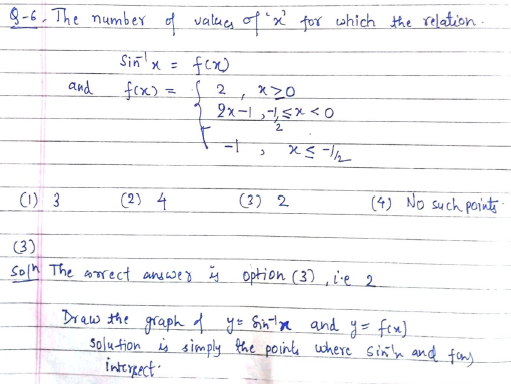 Q-6. The number of values of 'x' for which the relation.
Sin⁻¹x = f(x)
and f(x) = { 2 , x≥0
2x-1 , -1/2 ≤ x < 0
-1 , x ≤ -1/2
(1) 3 (2) 4 (3) 2 (4) No such points.
(3)
Solⁿ The correct answer is option (3), i.e 2
Draw the graph of y = Sin⁻¹x and y = f(x)
solution is simply the points where sin⁻¹x and f(x)
intersect.